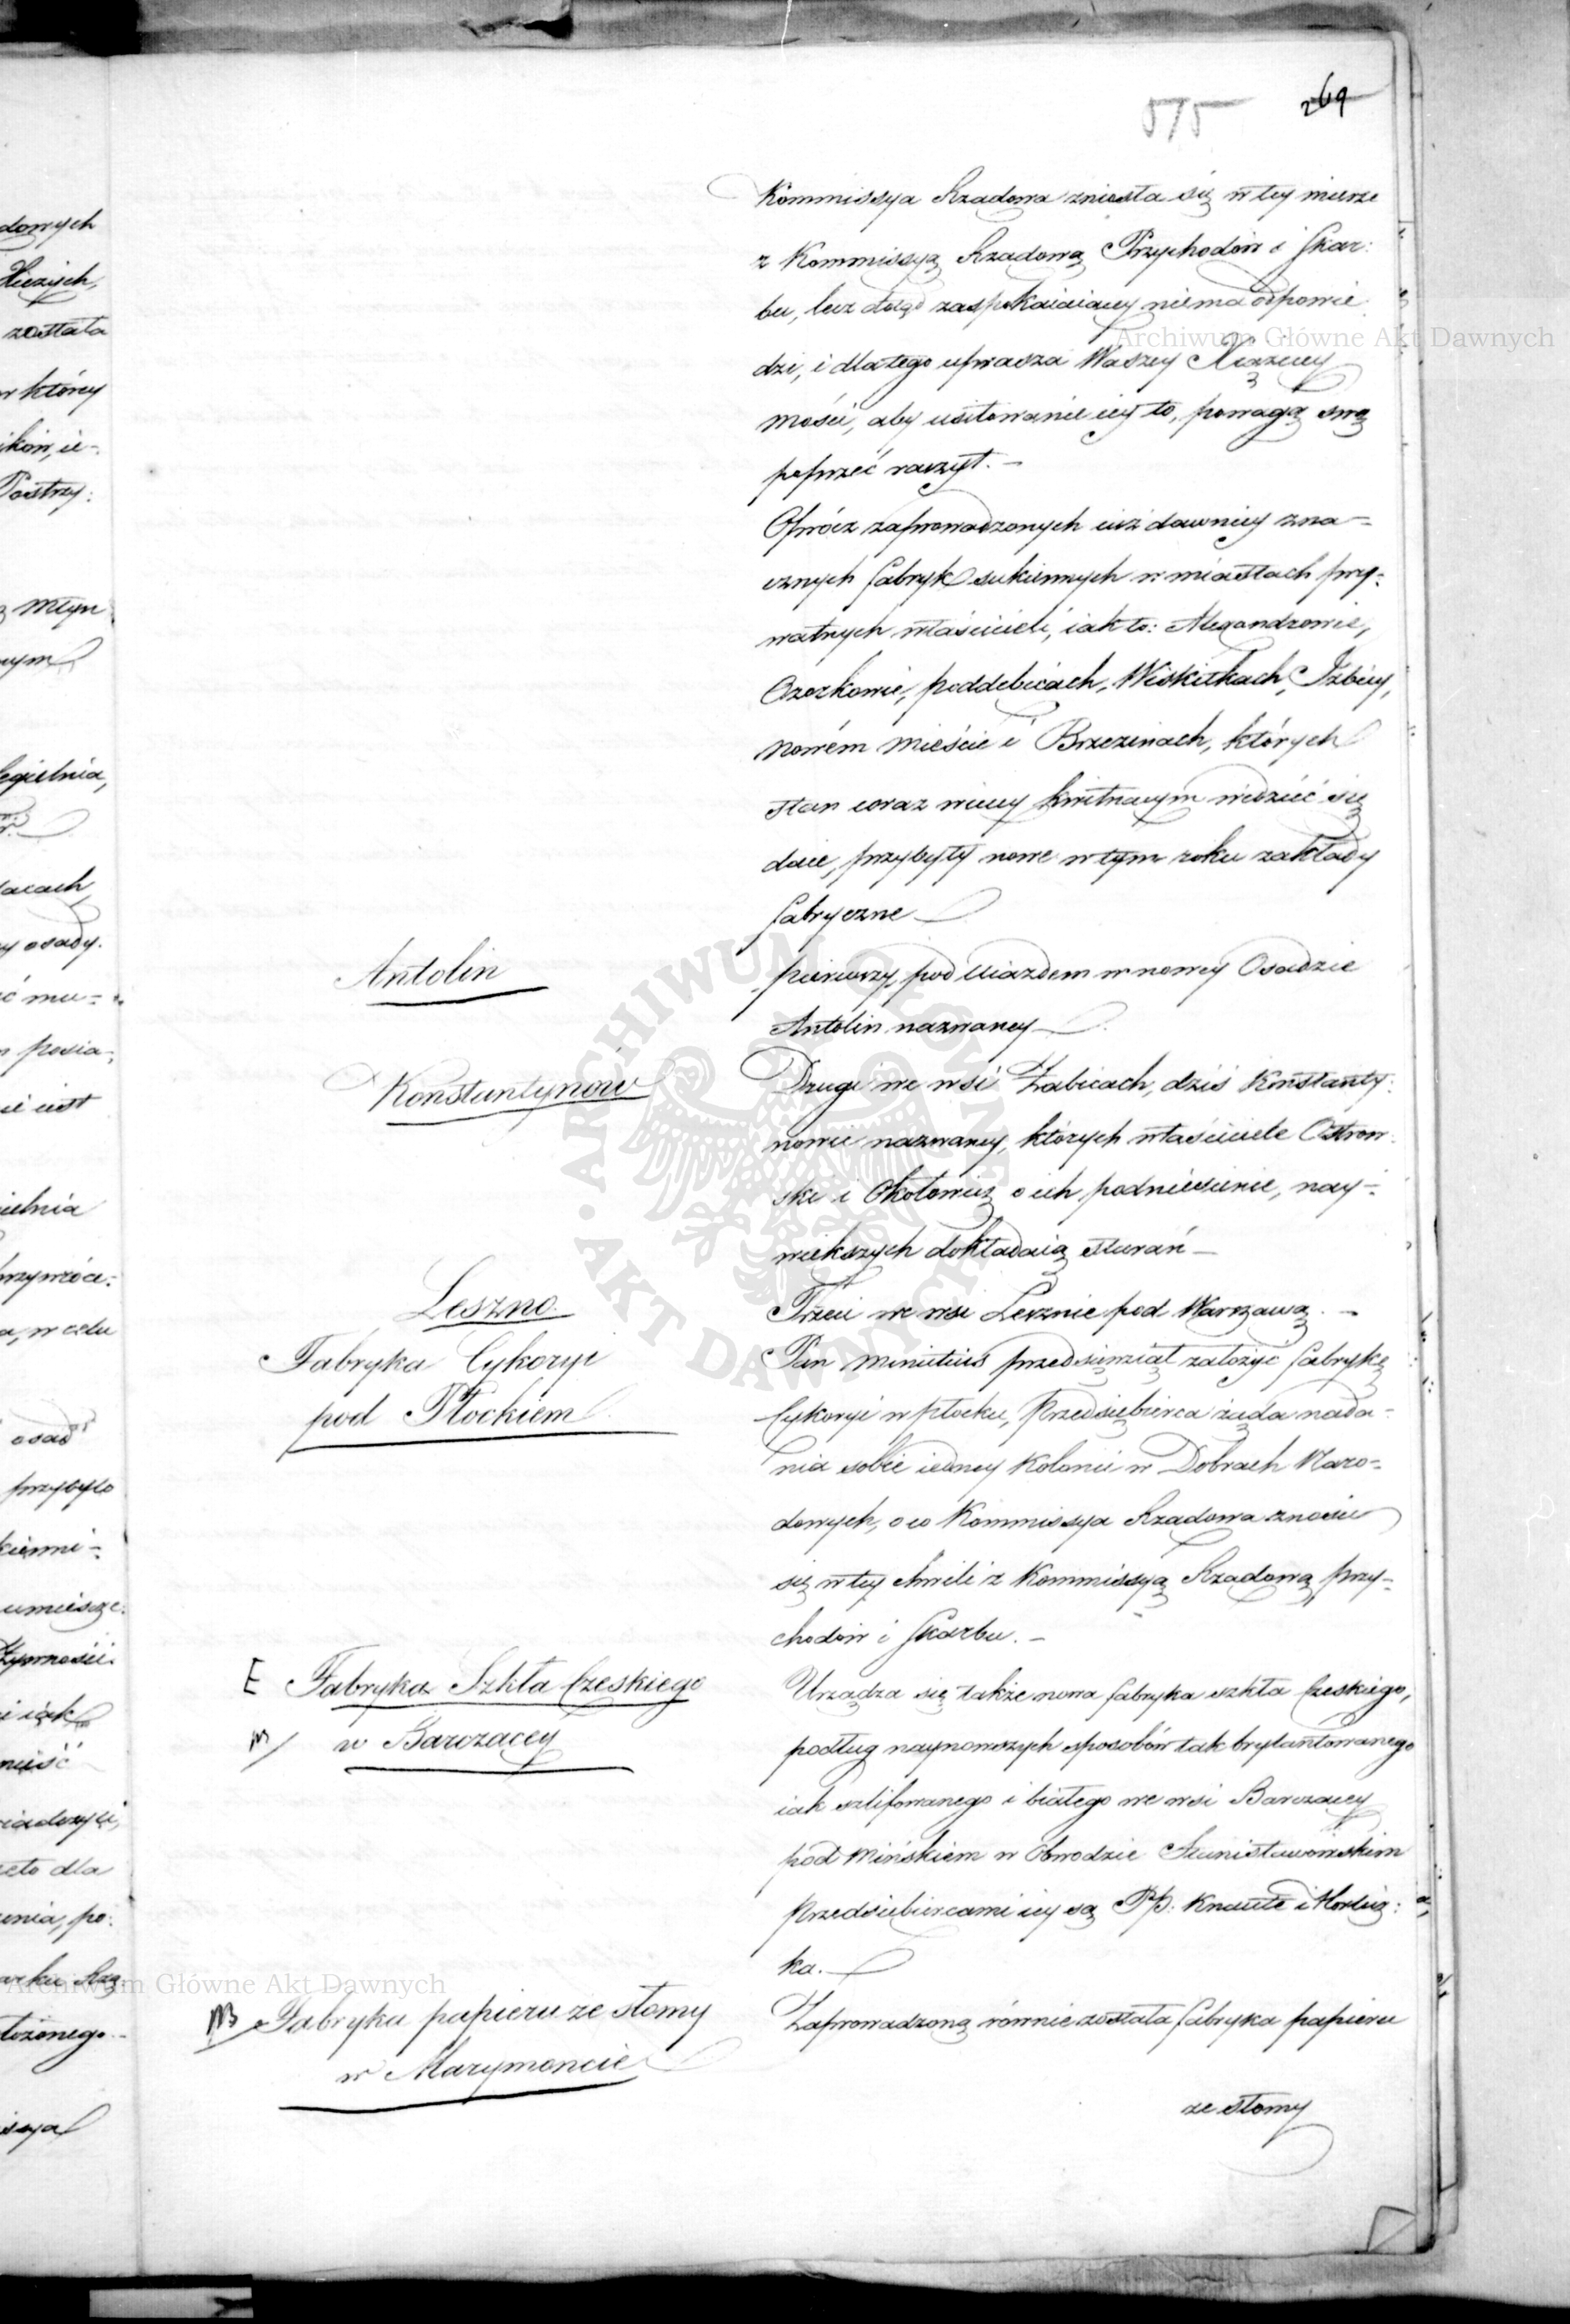 575 269
Kommissya Rządowa zniosła się w tey mierze
z Kommissyą Rządową Przychodów i Skar:
bu, lecz dotąd zaspokaiaiącey niema odpowie
dzi, i dlatego uprasza Waszey Xiążęcey
Mości, aby usiłowanie iey to, powagą swą
poprzeć raczył. —
Oprócz zaprowadzonych iuż dawniey zna-
cznych fabryk sukiennych w miastach pry-
watnych właścicieli, iak to: Alexandrowie,
Ozorkowie, poddębicach, Wiskitkach, Izbicy,
Nowém Mieście i Brzezinach, których
stan coraz więcey kwitnącym widzieć się
daie, przybyły nowe w tym roku zakłady
fabryczne
Antolin
pierwszy, pod Uiazdem w nowey Osadzie
Antolin nazwaney
Konstantynów
Drugi we wsi Żabicach, dziś Konstanty:
nowie nazwaney, których właściciele Ostrow
ski i Okołowicz o ich podniesienie, nay-
większych dokładaią starań —
Leszno.
Trzeci we wsi Lesznie pod Warszawą. —
Fabryka Cykoryi
pod Płockiem
Pan Minutius przedsięwziął założyć fabrykę
Cykoryi w Płocku, Przedsiębierca żąda nada-
nia sobie iedney Kolonii w Dobrach Naro-
dowych, o co Kommissya Rządowa znosi
się w tey chwili z Kommissyą Rządową Przy-
chodów i Skarbu. —
E Fabryka Szkła Czeskiego
w Barczącey
Urządza się także nowa fabryka szkła Czeskiego,
podług naynowszych sposobów tak brylantowanego
iak szlifowanego i białego we wsi Barczącey
pod Mińskiem w Obwodzie Stanisławowskim
Przedsiębiercami iey są PP: Knaute i Horlicz:
ka.
Fabryka papieru ze słomy
w Marymoncie
Zaprowadzoną równie została fabryka papieru
ze słomy
dowych
została
w który
Młyn
cegielnia,
osady.
posia-
w celu
osad
przybyło
umieszcze:
Żywności.
i iak
dla
Archiwum Główne Akt Dawnych
Archiwum Główne Akt Dawnych
ARCHIWUM GŁÓWNE AKT DAWNYCH